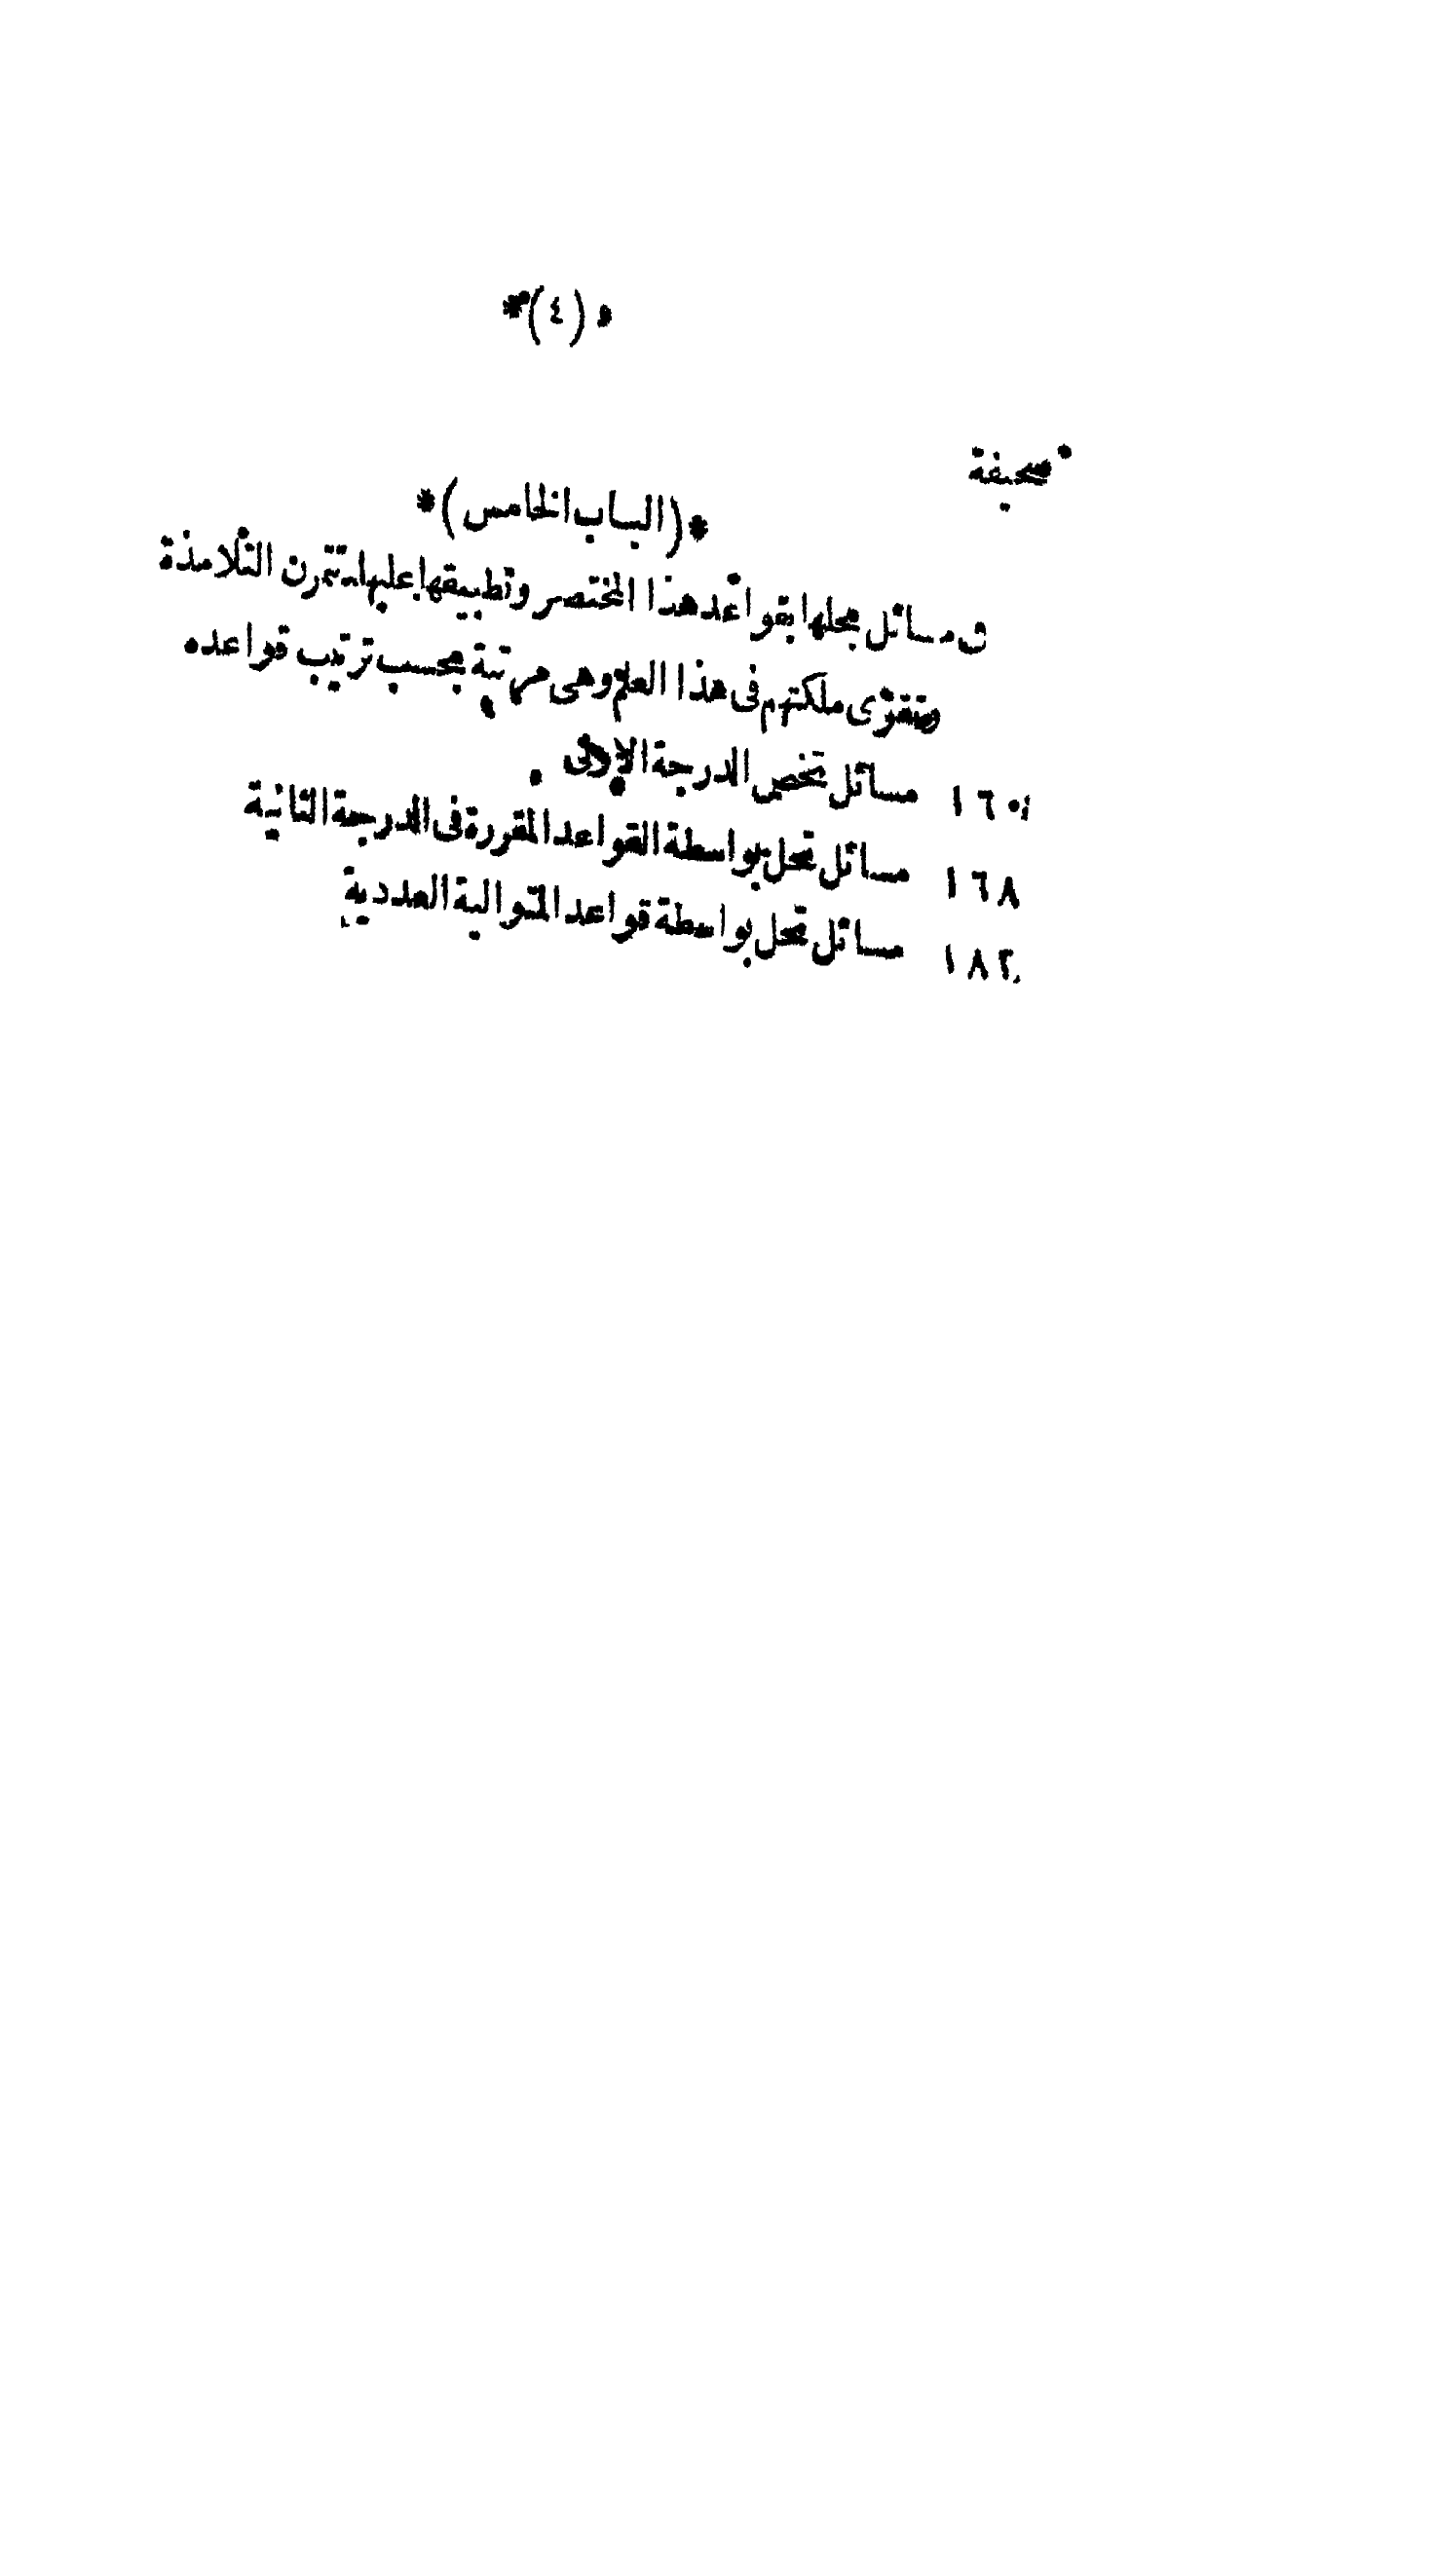 *(٤)*
صحيفة
*(الباب الخامس)*
فى مسائل بحلها بقواعد هذا المختصر وتطبيقها عليها تتمرن التلامذة
وتتقوى ملكتهم فى هذا العلم وهى مرتبة بحسب ترتيب قواعده
١٦٠ مسائل تخص الدرجة الاولى
١٦٨ مسائل تحل بواسطة القواعد المقررة فى الدرجة الثانية
١٨٢ مسائل تحل بواسطة قواعد المتوالية العددية